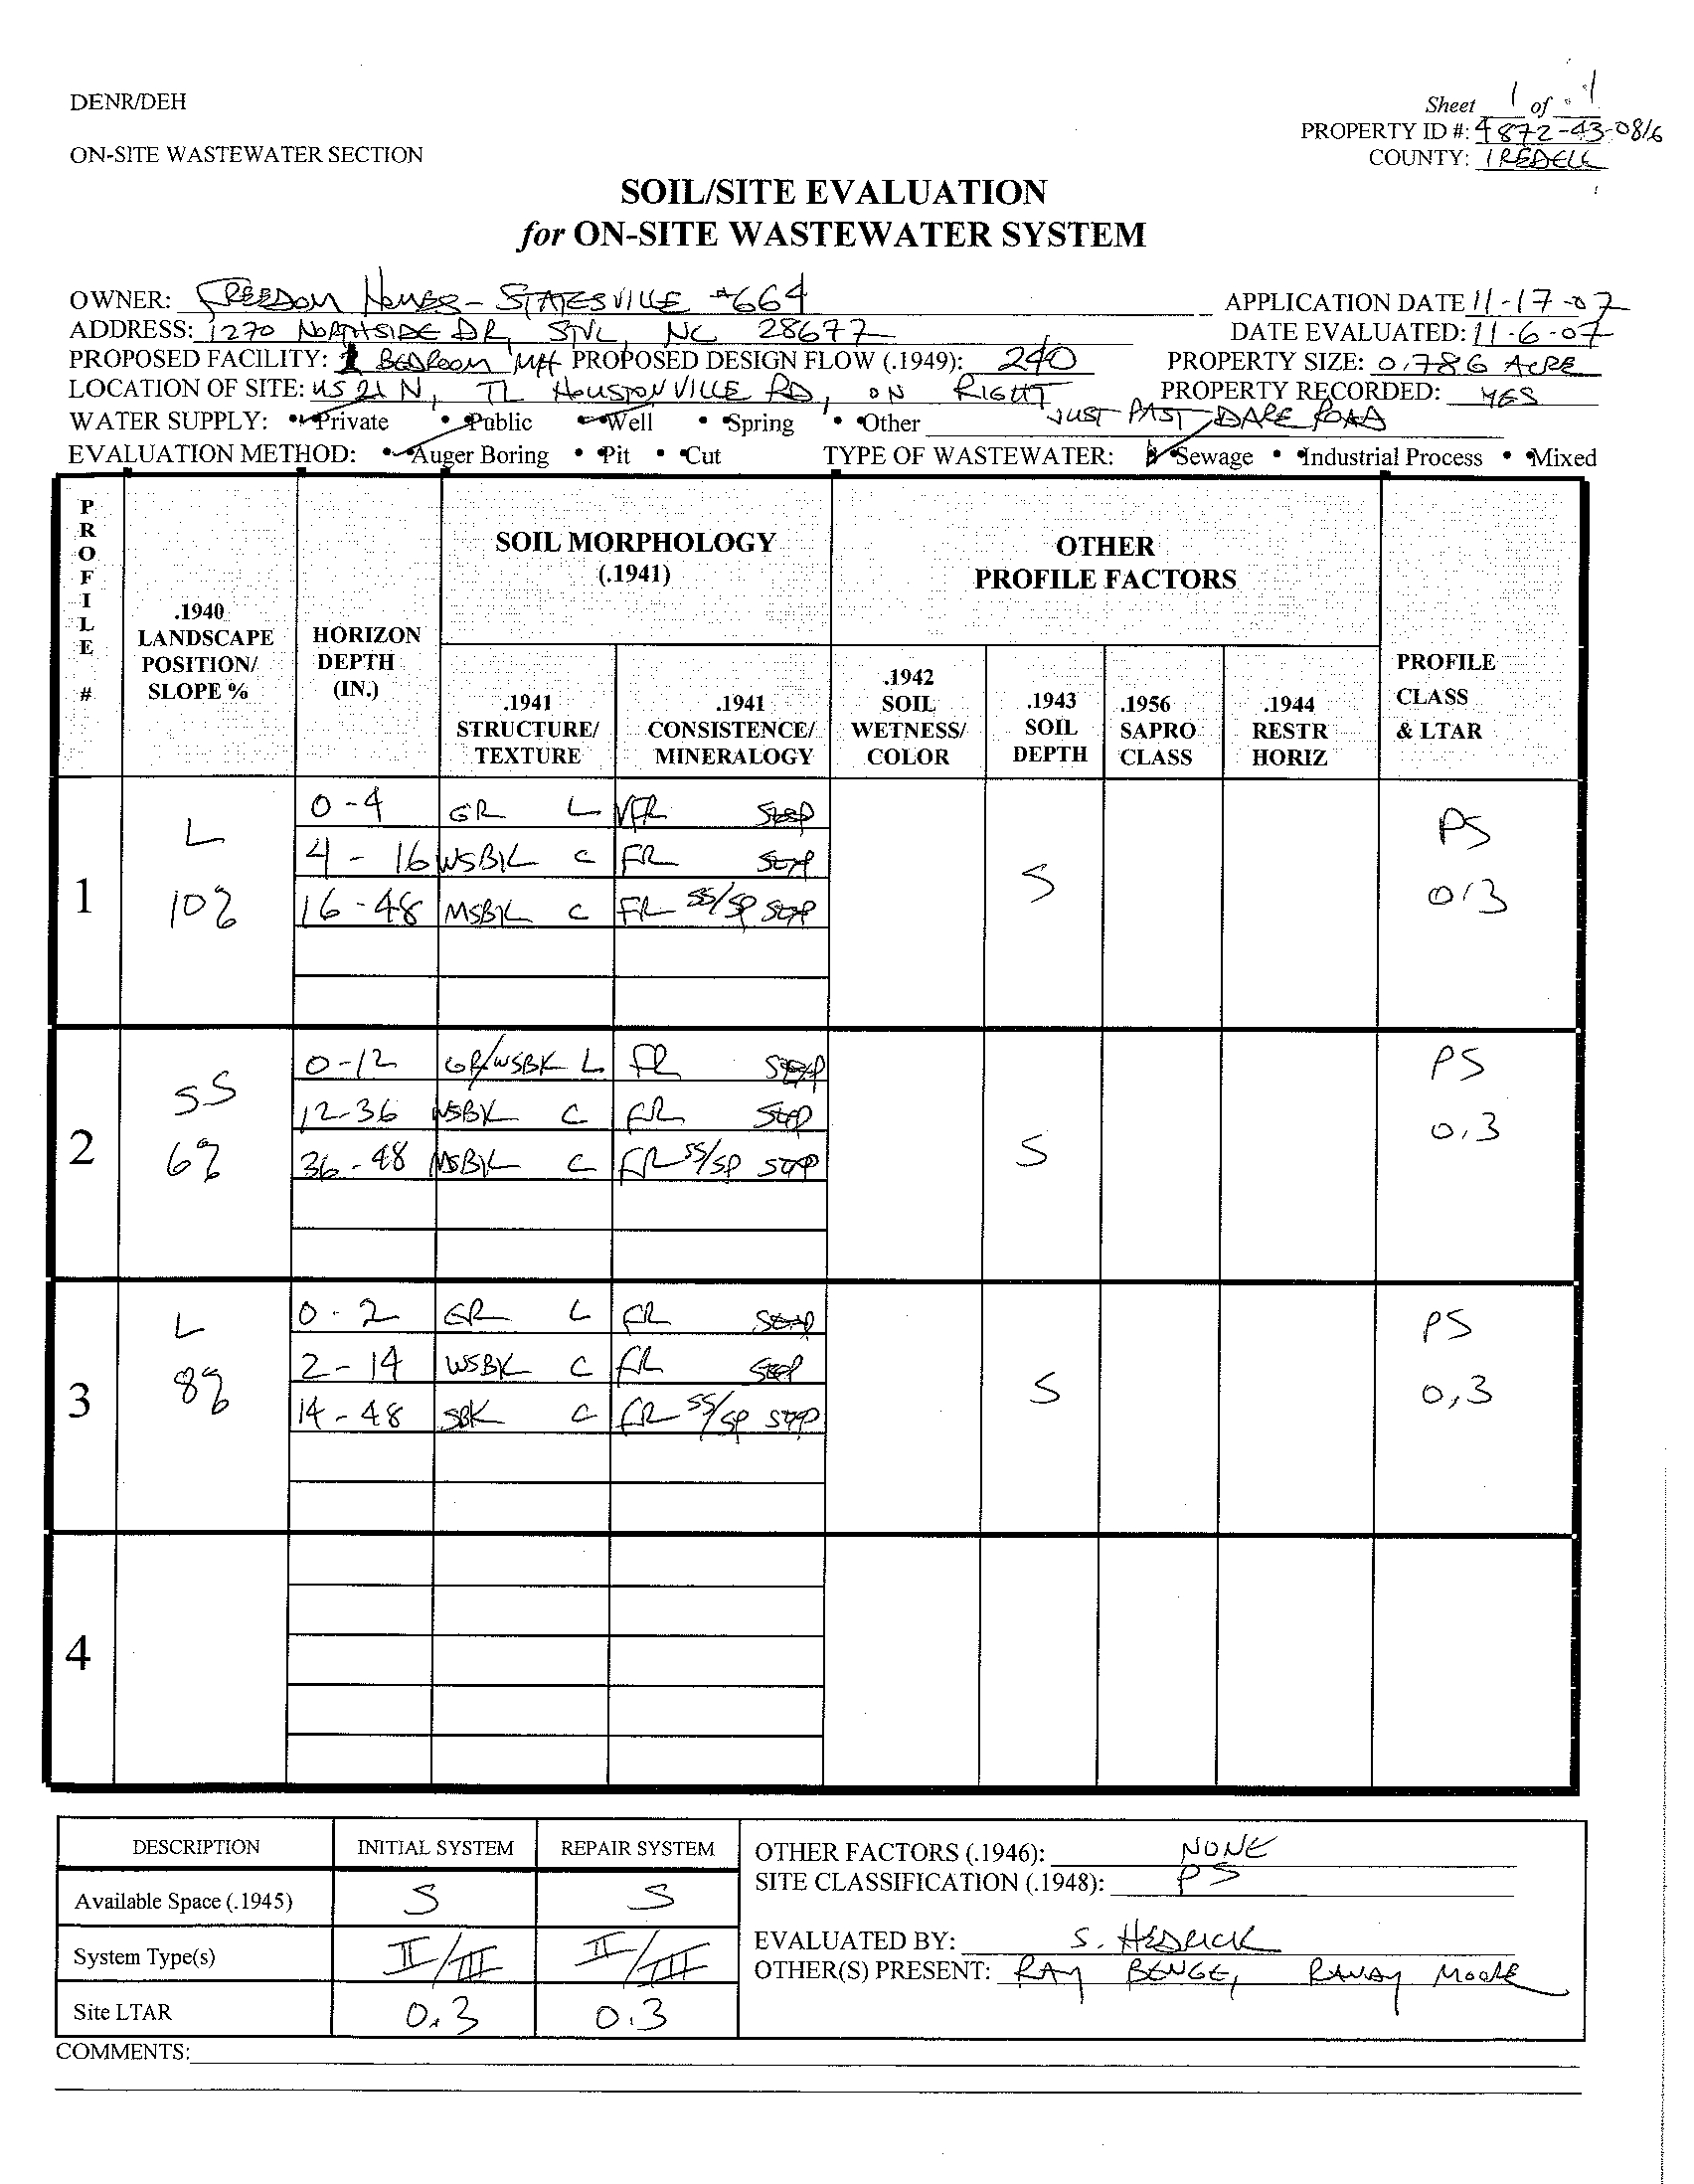 DENR/DEH
Sheet 1 of 1
PROPERTY ID #: 4872-43-0816
ON-SITE WASTEWATER SECTION
COUNTY: IREDELL
SOIL/SITE EVALUATION
for ON-SITE WASTEWATER SYSTEM
OWNER: FREEDOM HOMES - STATESVILLE #664 APPLICATION DATE 11-17-07
ADDRESS: 1270 NORTHSIDE DR, STVL, NC 28677 DATE EVALUATED: 11-6-07
PROPOSED FACILITY: BEDROOM MH PROPOSED DESIGN FLOW (.1949): 240 PROPERTY SIZE: 0.786 ACRE
LOCATION OF SITE: US 21 N, TL HOUSTONVILLE RD, ON RIGHT PROPERTY RECORDED: YES
JUST PAST DARE ROAD
WATER SUPPLY: Private Public Well Spring Other
EVALUATION METHOD: Auger Boring Pit Cut TYPE OF WASTEWATER: Sewage Industrial Process Mixed
PROFILE #
.1940 LANDSCAPE POSITION/ SLOPE %
HORIZON DEPTH (IN.)
SOIL MORPHOLOGY (.1941)
.1941 STRUCTURE/ TEXTURE
.1941 CONSISTENCE/ MINERALOGY
OTHER PROFILE FACTORS
.1942 SOIL WETNESS/ COLOR
.1943 SOIL DEPTH
.1956 SAPRO CLASS
.1944 RESTR HORIZ
PROFILE CLASS & LTAR
1 L 10% S PS 0.3
0-4 GR L VFR
4-16 WSBK C FR
16-48 MSBK C FR SS/SP SEXP
2 SS 6% S PS 0.3
0-12 GR/WSBK L FR
12-36 WSBK C FR SEXP
36-48 MSBK C FR SS/SP SEXP
3 L 8% S PS 0,3
0-2 GR L FR
2-14 WSBK C FR
14-48 SBK C FR SS/SP SEXP
4
DESCRIPTION INITIAL SYSTEM REPAIR SYSTEM
Available Space (.1945) S S
System Type(s) II/III II/III
Site LTAR 0.3 0.3
OTHER FACTORS (.1946): NONE
SITE CLASSIFICATION (.1948): PS
EVALUATED BY: S. HEDRICK
OTHER(S) PRESENT: RAY BENGE, RANDY MOORE
COMMENTS: